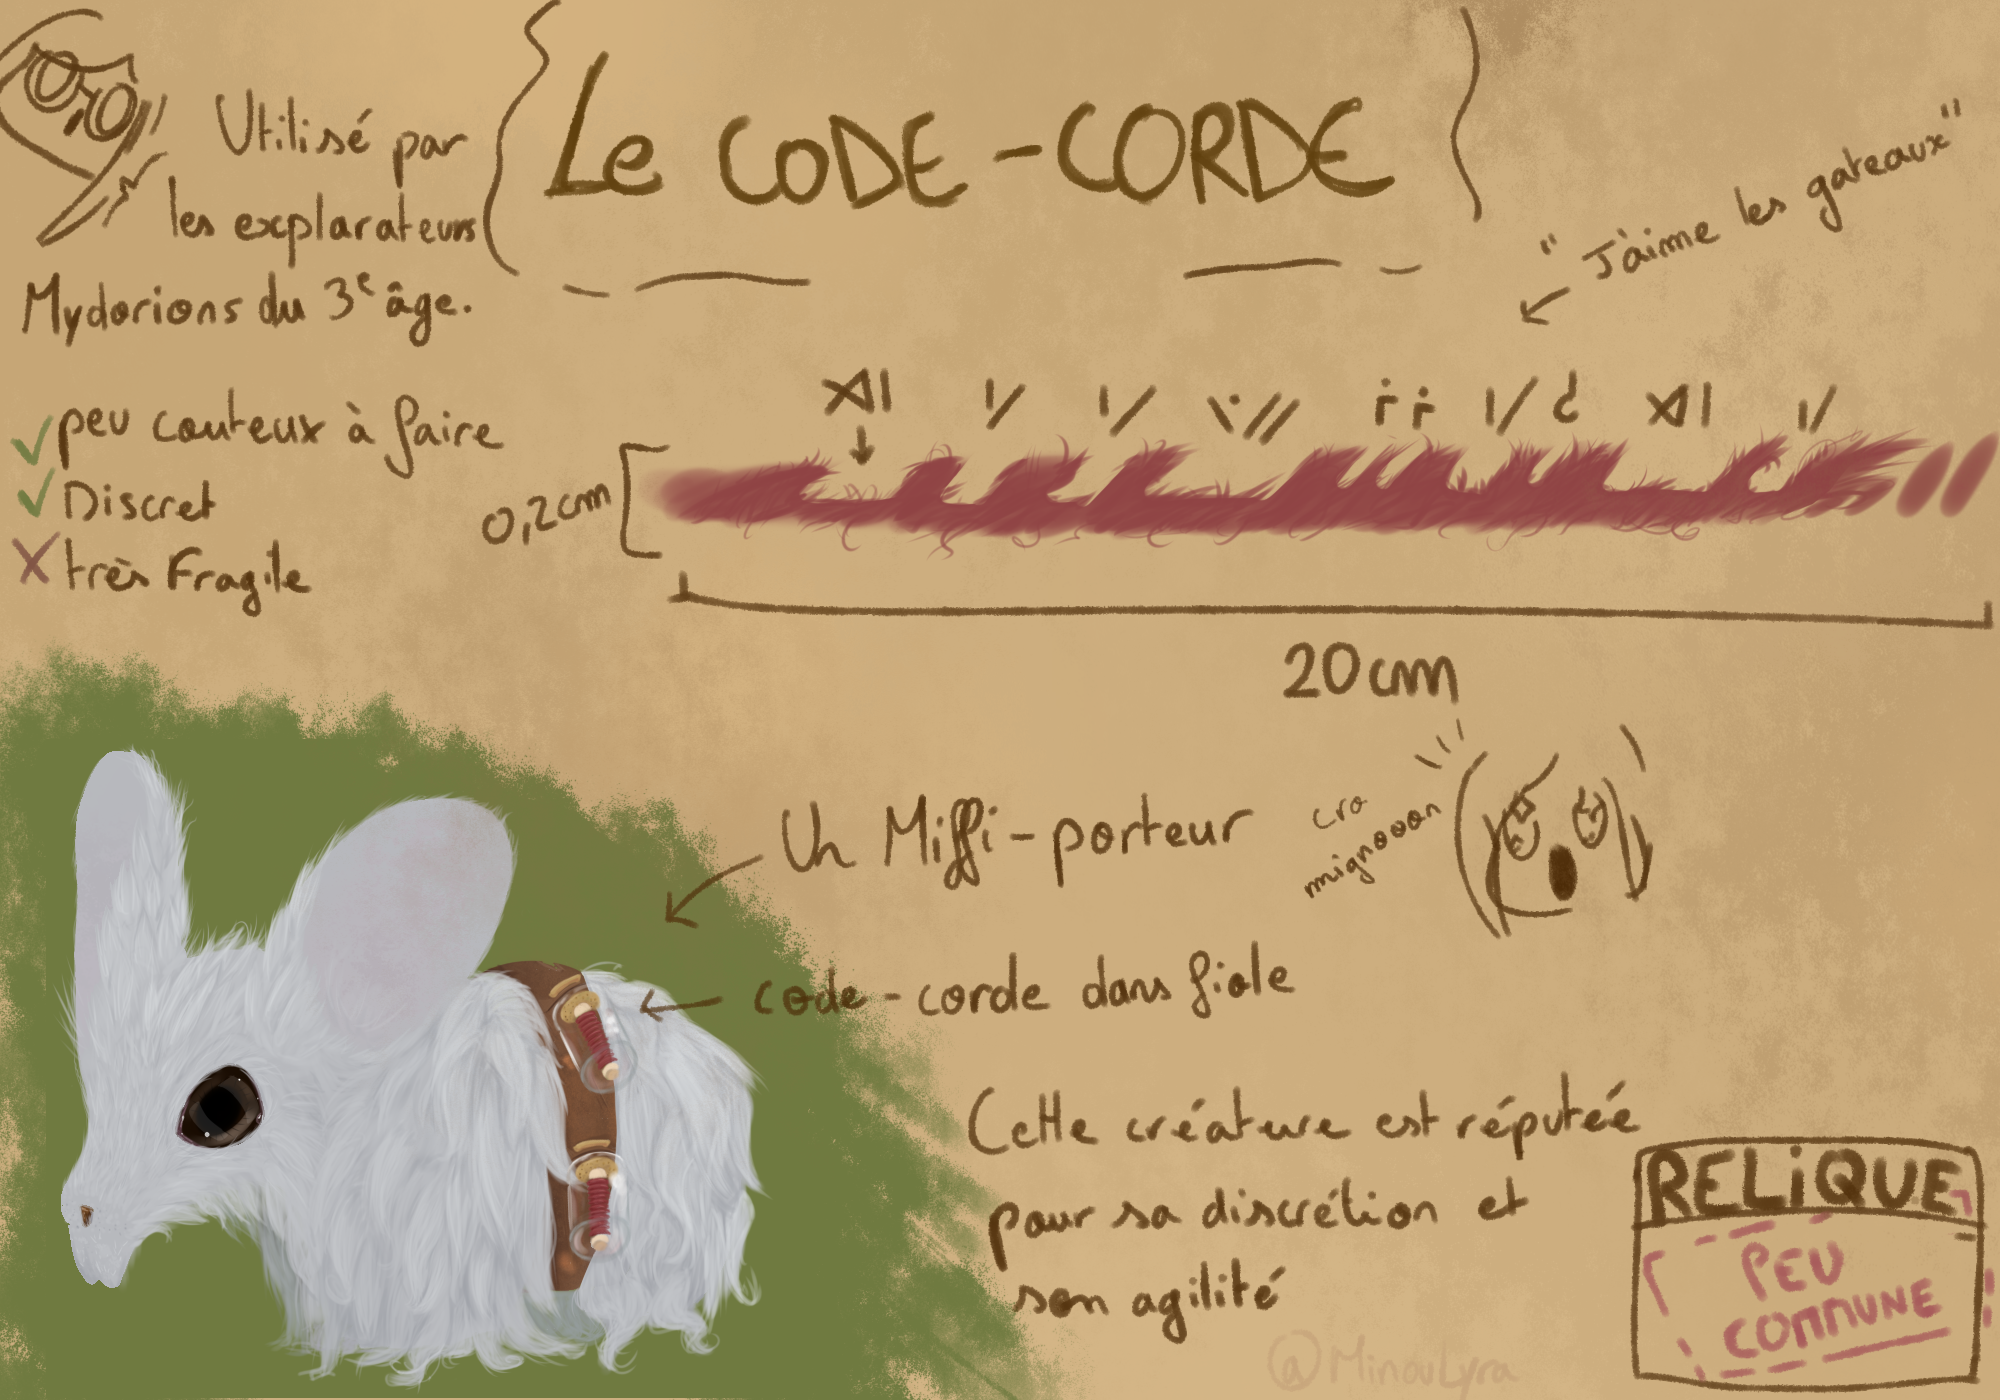 Le CODE-CORDE
Utilisé par
les explarateurs
Mydorions du 3e âge.
peu couteux à faire
Discret
très Fragile
"J'aime les gateaux"
0,2cm
20cm
Un Miffi-porteur
cro
mignooon
code-corde dans fiole
Cette créature est réputée
pour sa discrétion et
son agilité
RELiQUE
PEU
COMMUNE
@MinouLyra